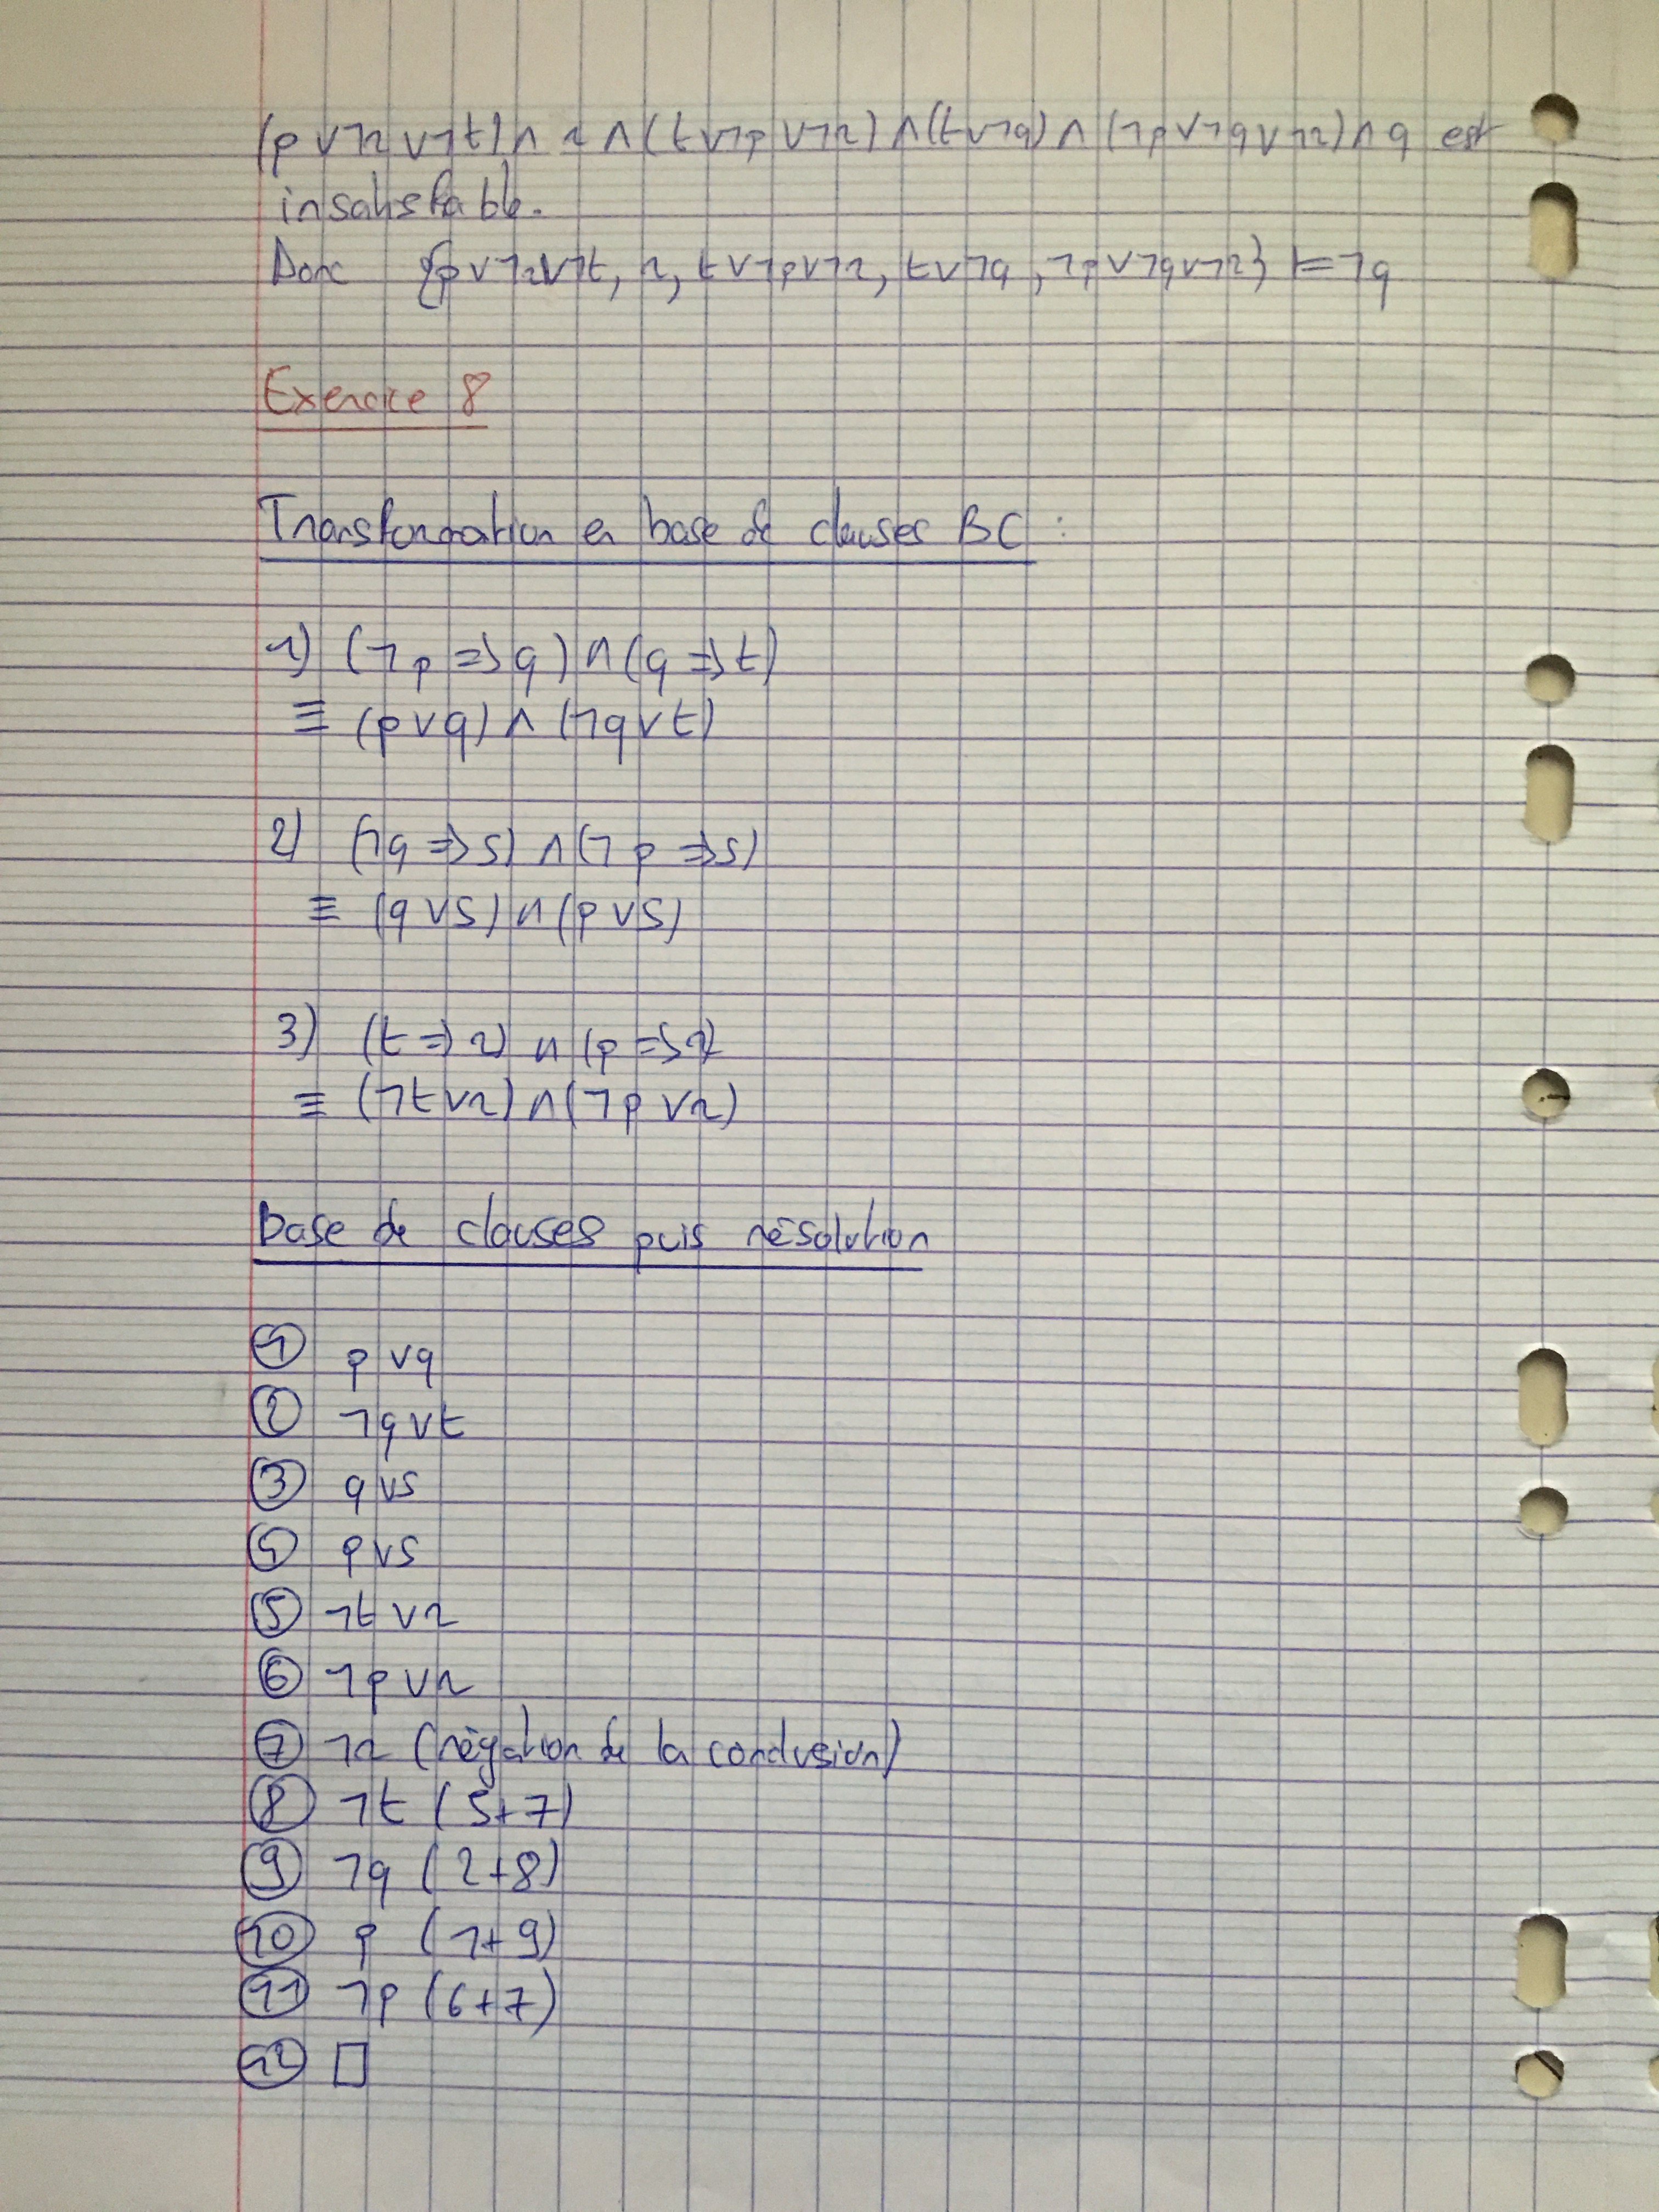 (p ∨ ¬r ∨ ¬t) ∧ r ∧ (t ∨ ¬p ∨ ¬r) ∧ (t ∨ ¬q) ∧ (¬p ∨ ¬q ∨ ¬r) ∧ q est
insatisfiable.
Donc {p ∨ ¬r ∨ ¬t, r, t ∨ ¬p ∨ ¬r, t ∨ ¬q, ¬p ∨ ¬q ∨ ¬r} ⊨ ¬q
Exercice 8
Transformation en base de clauses BC :
1) (¬p => q) ∧ (q => t)
≡ (p ∨ q) ∧ (¬q ∨ t)
2) (¬q => s) ∧ (¬p => s)
≡ (q ∨ s) ∧ (p ∨ s)
3) (t => r) ∧ (p => r)
≡ (¬t ∨ r) ∧ (¬p ∨ r)
Base de clauses puis résolution
① p ∨ q
② ¬q ∨ t
③ q ∨ s
④ p ∨ s
⑤ ¬t ∨ r
⑥ ¬p ∨ r
⑦ ¬r (négation de la conclusion)
⑧ ¬t (5+7)
⑨ ¬q (2+8)
⑩ p (1+9)
⑪ ¬p (6+7)
⑫ □